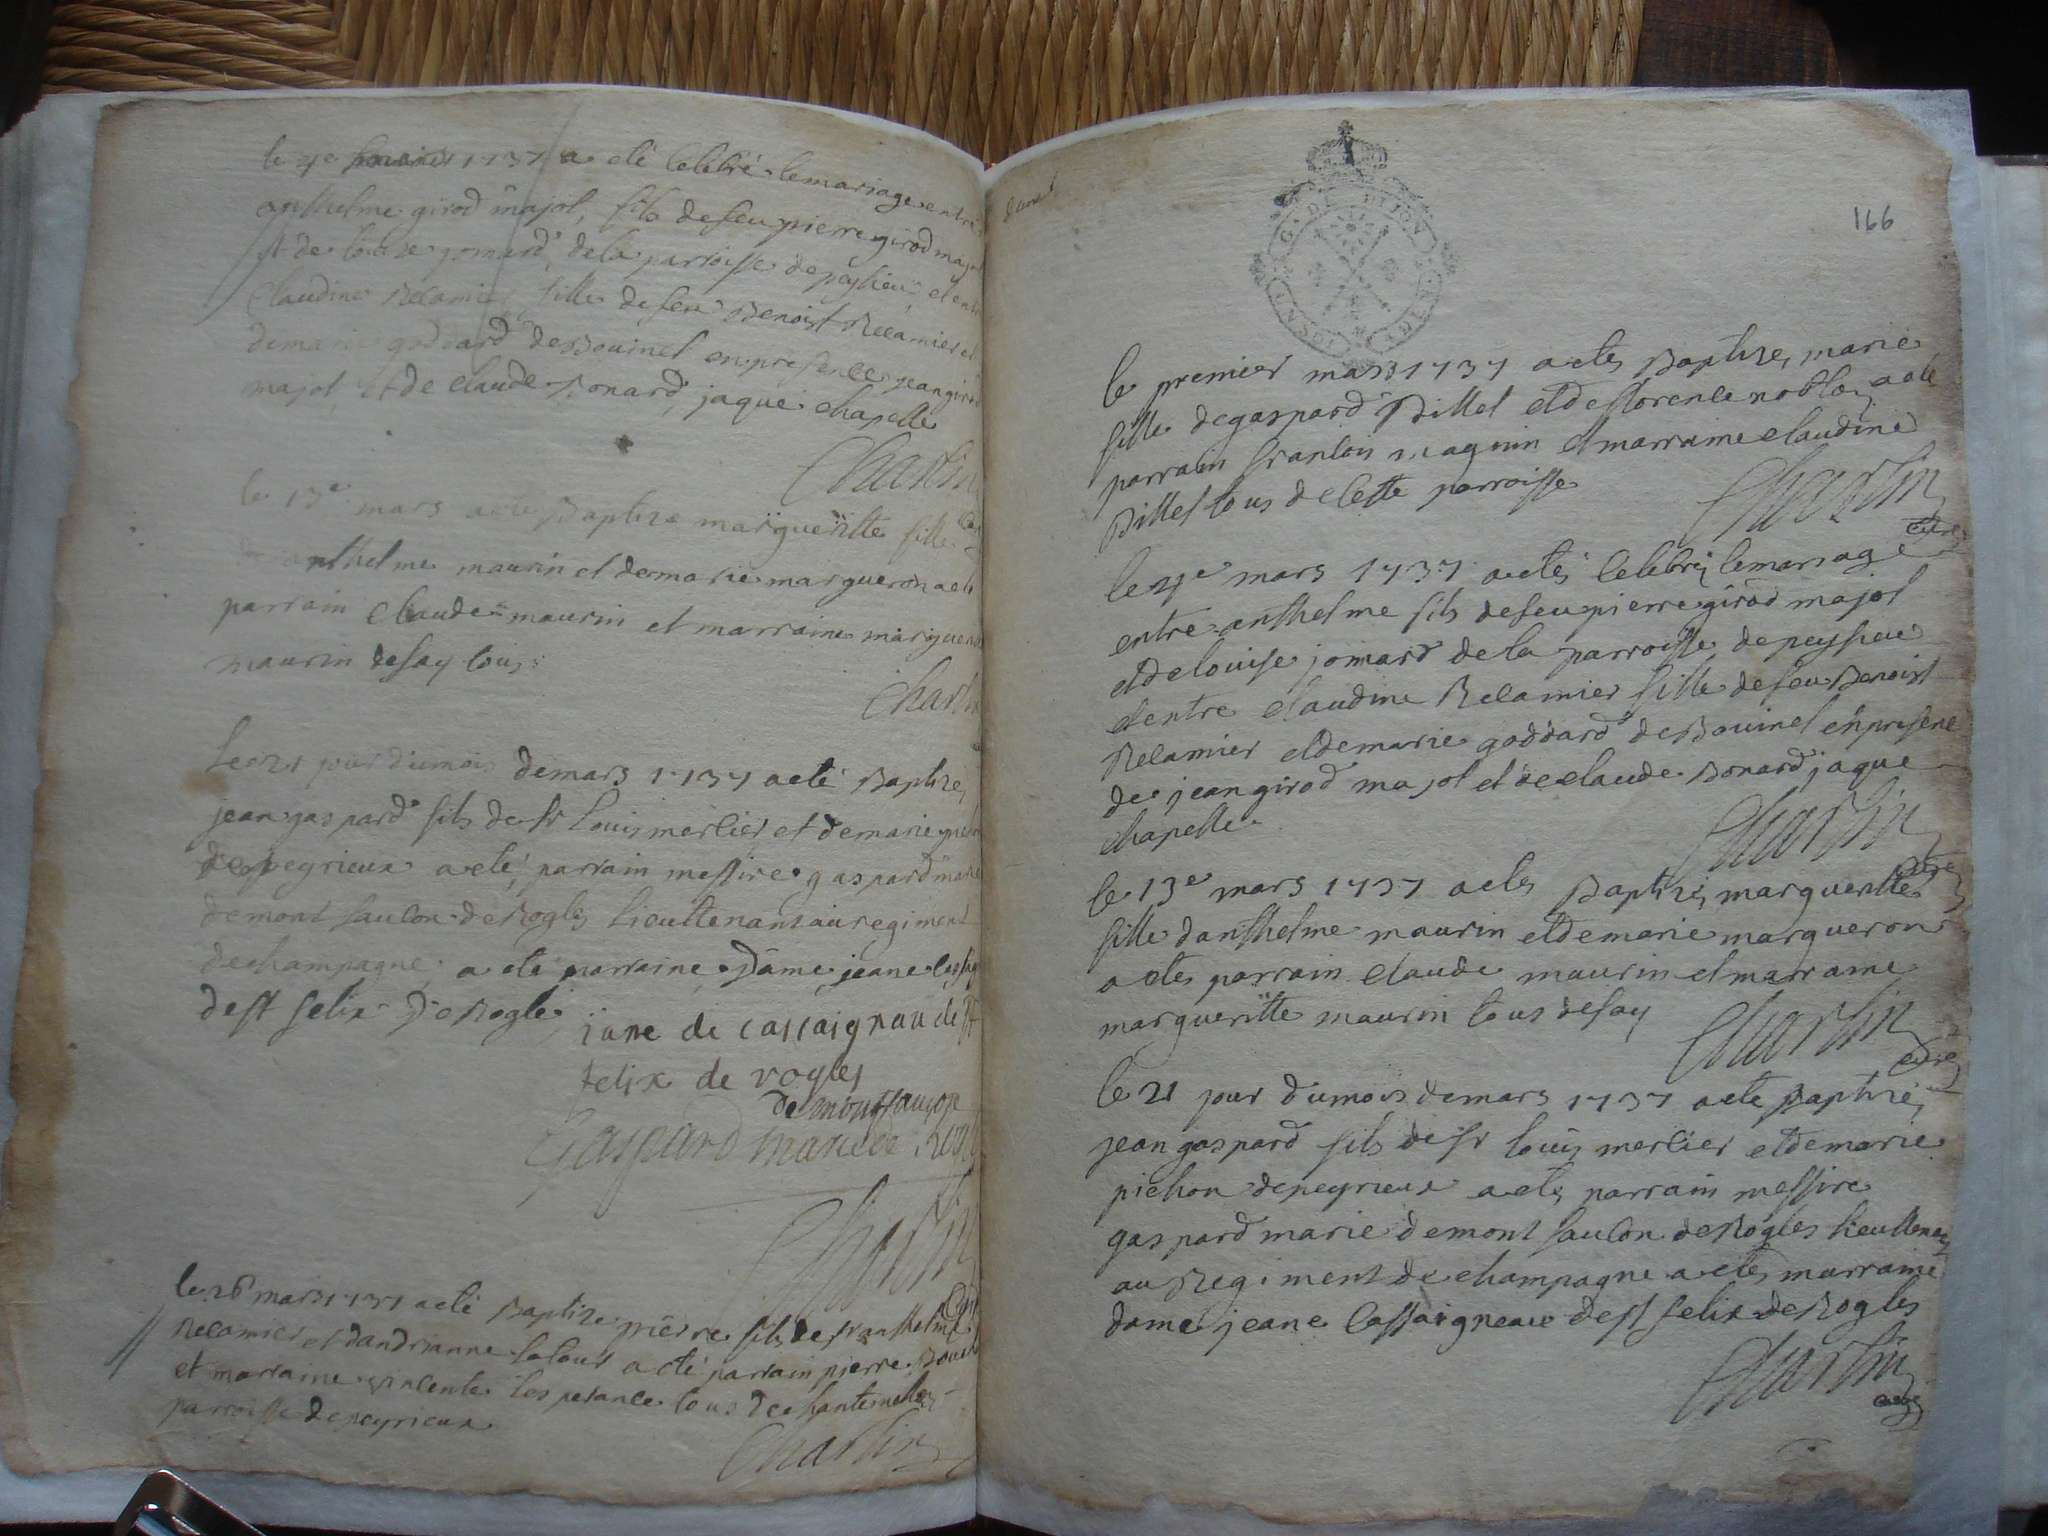 le 4e mars 1737 a eté celebré le mariage entre
anthelme girod majol, fils de feu pierre girod majol
et de louise jomard de la parroisse de peysieu, et entre
Claudine Recamier fille de feu Benoist Recamier et
de marie goddard de Bouinel en presence jean girod
majol et de claude Bonard, jaque chapelle
Charlin
le 13e mars a ete Baptize margueritte fille
anthelme maurin et de marie margueron a ete
parrain Claude maurin et marraine margueritte
maurin de fay tous
Charlin
le 21 jour du mois de mars 1737 a eté Baptize,
jean gaspard fils de sr louis merlier, et de marie
de peyrieux a eté, parrain messire gaspard marie
de mont faulcon de Rogles lieuttenant au regiment
de champagne, a eté marraine, Dame, jeane
de st felix De Rogle
jane de cassaignau de st
felix de rogles
de montfaucon
Gaspard marie de Rogles
Charlin
le 26 mars 1737 a eté Baptize pierre fils de sr anthelme
Recamier et dandrianne a eté parrain pierre
et marraine vincente tous de chantemelle
parroisse de peyrieux
Charlin
166
G. DE DIJON
le premier mars 1737 a eté Baptize, marie
fille de gaspard Billet et de florence a eté
parrain francois magnin et marraine claudine
Billet tous de cette parroisse
Charlin
curé
le 4e mars 1737 a eté celebré le mariage
entre anthelme fils de feu pierre girod majol
et de louise jomard de la parroisse de peysieu
et entre claudine Recamier fille de feu Benoist
Recamier et de marie goddard de Bouinel en presence
de jean girod majol et de claude Bonard, jaque
chapelle
Charlin
curé
le 13e mars 1737 a eté Baptizé, margueritte
fille danthelme maurin et de marie margueron
a eté parrain claude maurin et marraine
margueritte maurin tous de fay
Charlin
curé
le 21 jour du mois de mars 1737 a eté Baptizé,
jean gaspard fils de sr louis merlier et de marie
pichon de peyrieux a eté parrain messire
gaspard marie de mont faulcon de Rogles lieuttenant
au Regiment de champagne a eté marraine
dame jeane Cassaigneau de st felix de Rogles
Charlin
curé